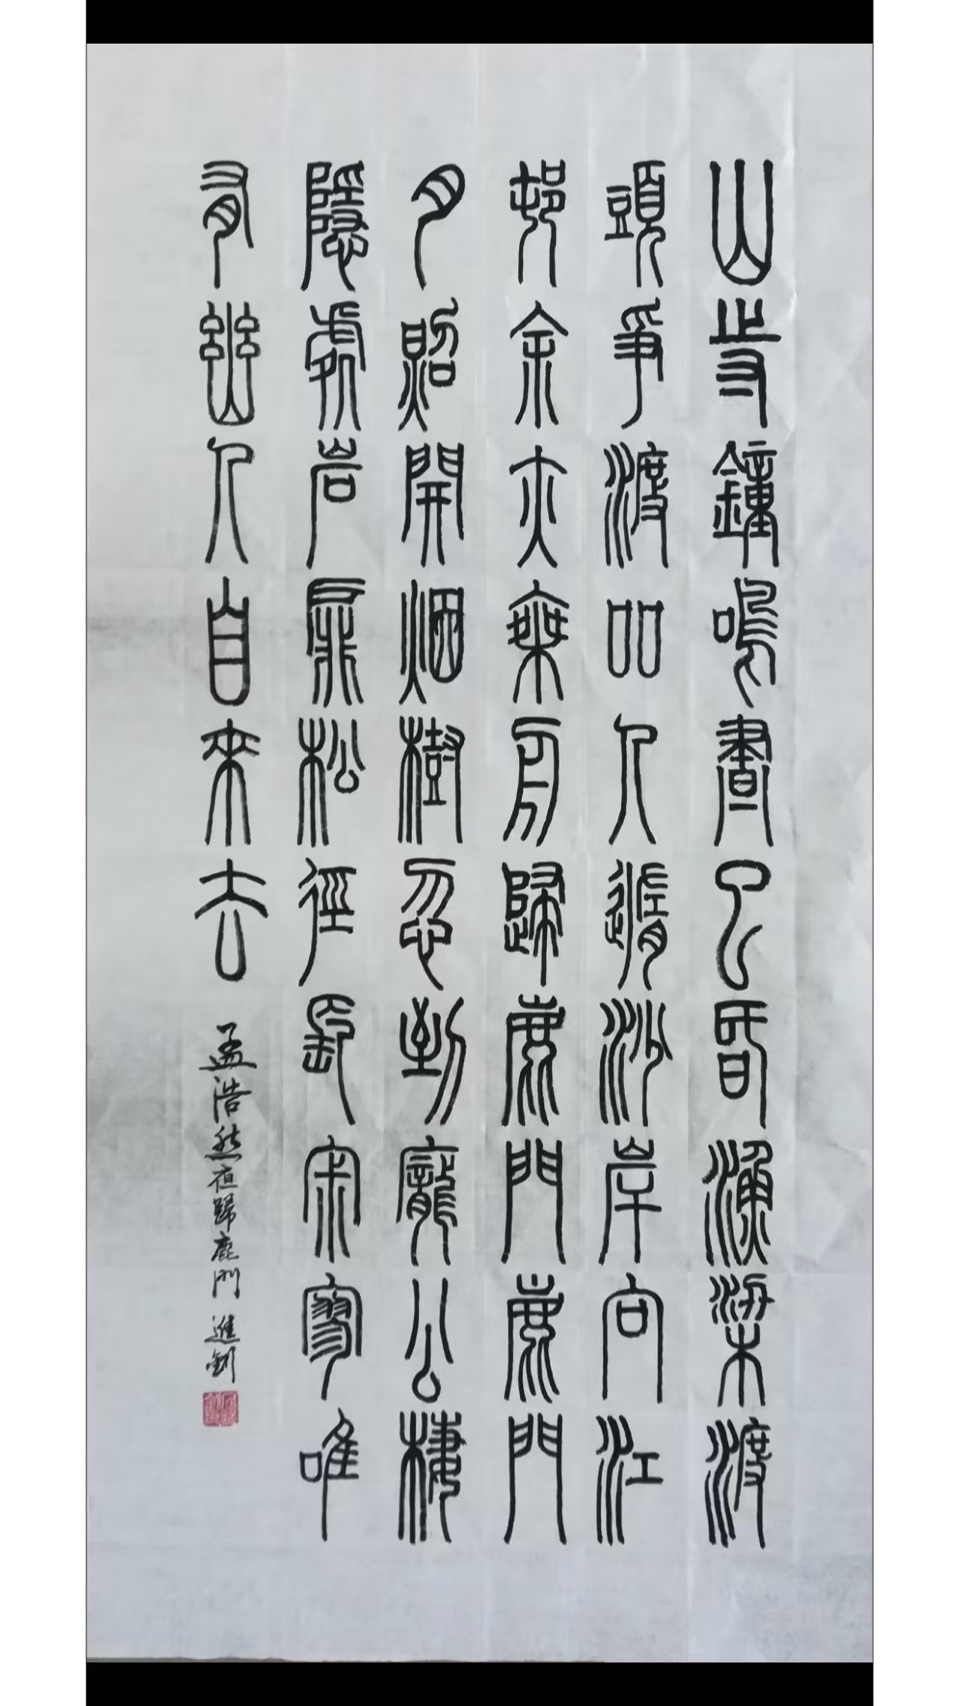 山寺鐘鳴晝已昏漁梁渡
頭爭渡吅人隨沙岸向江
邨余亦乘舟歸鹿門鹿門
月照開烟樹忽到龐公棲
隱處岩扉松徑長寂寥唯
有幽人自來去
孟浩然夜歸鹿門 進釗